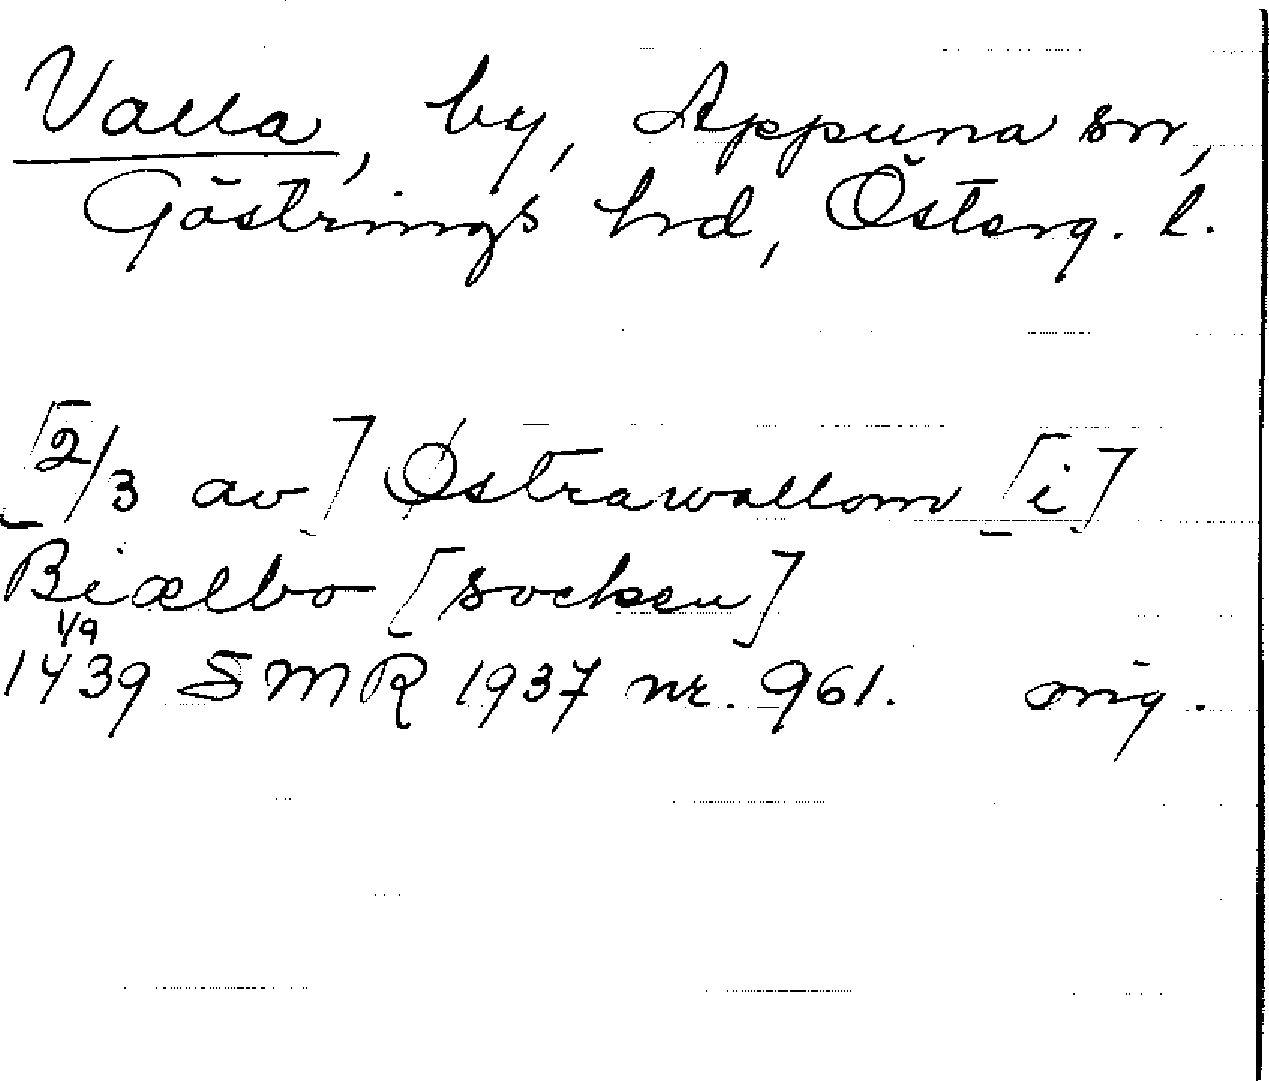 Valla, by, Appuna sn,
Göstrings hrd, Österg. l.
[2/3 av] Østrawallom [i]
Biælbo [socken]
1/9
1439 SMR 1937 nr. 961. orig.